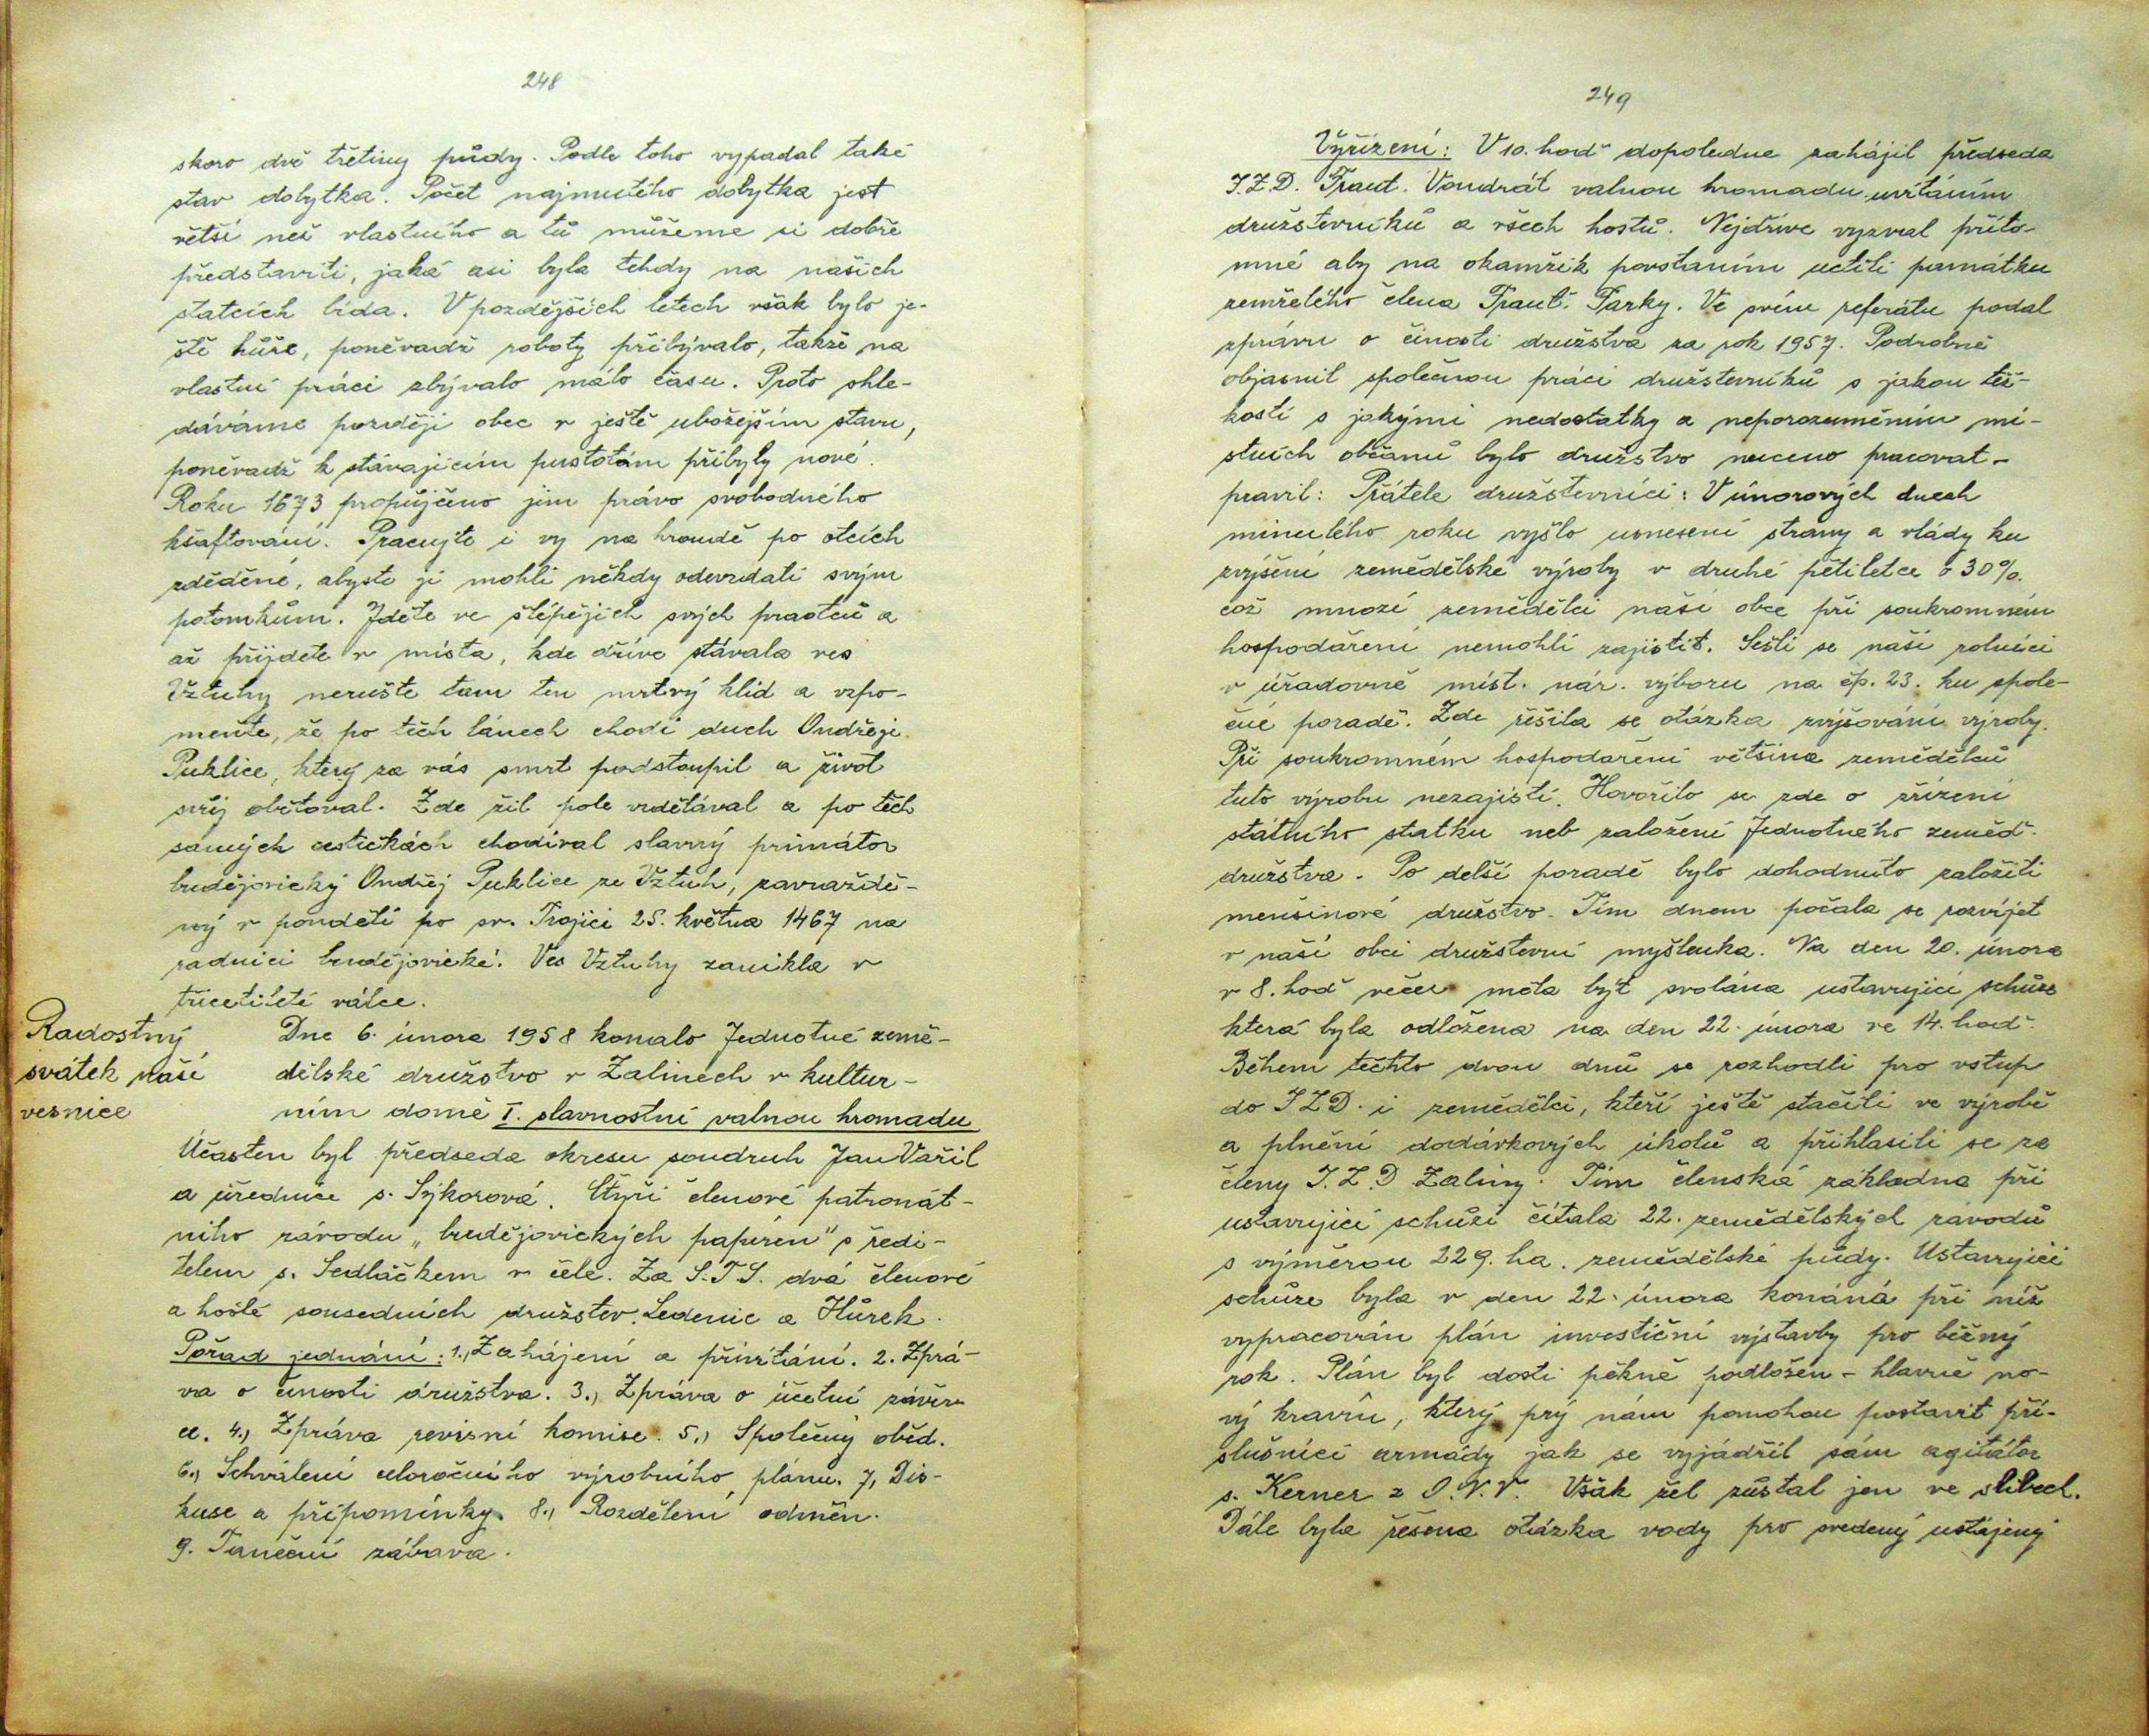 248
skoro dvě třetiny půdy. Podle toho vypadal také
stav dobytka. Počet najmutého dobytka jest
větší než vlastního a tů můžeme si dobře
představiti, jaká asi byla tehdy na našich
statcích bída. V pozdějších letech však bylo je-
ště hůře, poněvadž roboty přibývalo, takže na
vlastní práci zbývalo málo času. Proto shle-
dáváme později obec v ještě ubožejším stavu,
poněvadž k stávajícím pustotám přibyly nové.
Roku 1673 propůjčeno jim právo svobodného
kšaftování. Pracujte i vy na hroudě po otcích
zděděné, abyste ji mohli někdy odevzdati svým
potomkům. Jděte ve šlépějích svých praotců a
až přijdete v místa, kde dříve stávala ves
Vztuhy nerušte tam ten mrtvý klid a vzpo-
meňte, že po těch lánech chodí duch Ondřeje
Puklice, který za vás smrt podstoupil a život
svůj obětoval. Zde žil pole vzdělával a po těch
samých cestičkách chodíval slavný primátor
budějovický Ondřej Puklice ze Vztuh, zavraždě-
ný v pondělí po sv. Trojici 25. května 1467 na
radnici budějovické. Ves Vztuhy zanikla v
třicetileté válce.
Radostný
svátek naší
vesnice
Dne 6. února 1958 konalo Jednotné země-
dělské družstvo v Zalinech v kultur-
ním domě I. slavnostní valnou hromadu
Účasten byl předseda okresu soudruh Jan Vařil
a úřednice s. Sýkorová. Čtyři členové patronát-
ního závodu „budějovických papíren" s ředi-
telem s. Sedláčkem v čele. Za S.T.S. dvá členové
a hosté sousedních družstev. Ledenic a Hůrek.
Pořad jednání: 1., Zahájení a přivítání. 2. Zprá-
va o činosti družstva. 3., Zpráva o účetní závěr-
ce. 4., Zpráva revisní komise. 5., Společný oběd.
6., Schválení celoročního výrobního plánu. 7, Dis-
kuse a připomínky. 8., Rozdělení odměn.
9. Taneční zábava.
249
Vyřízení: V 10. hod dopoledne zahájil předseda
J.Z.D. Frant. Vondrát valnou hromadu uvítáním
družstevníků a všech hostů. Nejdříve vyzval příto-
mné aby na okamžik povstaním uctili památku
zemřelého člena Frant. Parky. Ve svém referátu podal
zprávu o činosti družstva za rok 1957. Podrobně
objasnil společnou práci družstevníků s jakou těž-
kostí s jakými nedostatky a neporozuměním mí-
stních občanů bylo družstvo nuceno pracovat-
pravil: Přátele družstevníci: V únorových dnech
minulého roku vyšlo usnesení strany a vlády ku
zvýšení zemědělské výroby v druhé pětiletce o 30%.
což mnozí zemědělci naší obce při soukromném
hospodaření nemohli zajistit. Sešli se naši rolníci
v úřadovně míst. nár. výboru na čp. 23. ku spole-
čné poradě. Zde řešila se otázka zvyšování vyroby.
Při soukromném hospodaření většina zemědělců
tuto výrobu nezajistí. Hovořilo se zde o zřízení
státního statku neb založení Jednotného zeměd.
družstva. Po delší poradě bylo dohodnuto založiti
menšinové družstvo. Tím dnem počala se rozvíjet
v naší obci družstevní myšlenka. Na den 20. února
v 8. hod večer měla být svolána ustavující schůze
která byla odložena na den 22. února ve 14. hod.
Během těchto dvou dnů se rozhodli pro vstup
do J.Z.D. i zemědělci, kteří ještě stačili ve výrobě
a plnění dodávkových úkolů a přihlasili se za
členy J.Z.D Zaliny. Tím členská základna při
ustavující schůzi čítala 22. zemědělských závodů
s výměrou 229. ha. zemědělské půdy. Ustavující
schůze byla v den 22. února konáná při níž
vypracován plán investiční výstavby pro běžný
rok. Plán byl dosti pěkně podložen - hlavně no-
vý kravín, který prý nám pomohou postavit pří-
slušníci armády jak se vyjádřil sám agitátor
s. Kerner z O.N.V. Však žel zůstal jen ve slibech.
Dále byla řešena otázka vody pro svedený ustájený